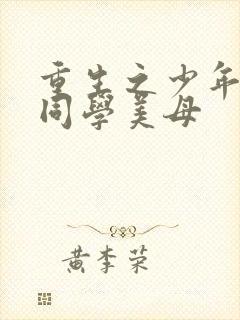 重生之少年
同學美母
黃李荣